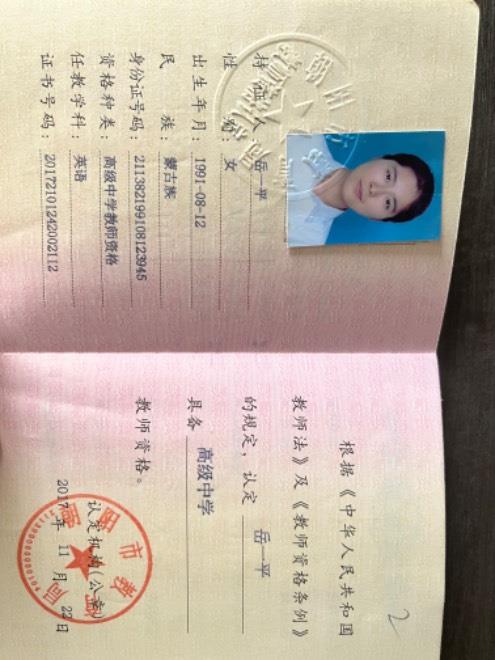 持证人：岳一平
性别：女
出生年月：1991-08-12
民族：蒙古族
身份证号码：211382199108123945
资格种类：高级中学教师资格
任教学科：英语
证书号码：20172101242002112
根据《中华人民共和国
教师法》及《教师资格条例》
的规定，认定 岳一平
具备 高级中学
教师资格。
认定机构(公章)
2017年 11月 22日
2